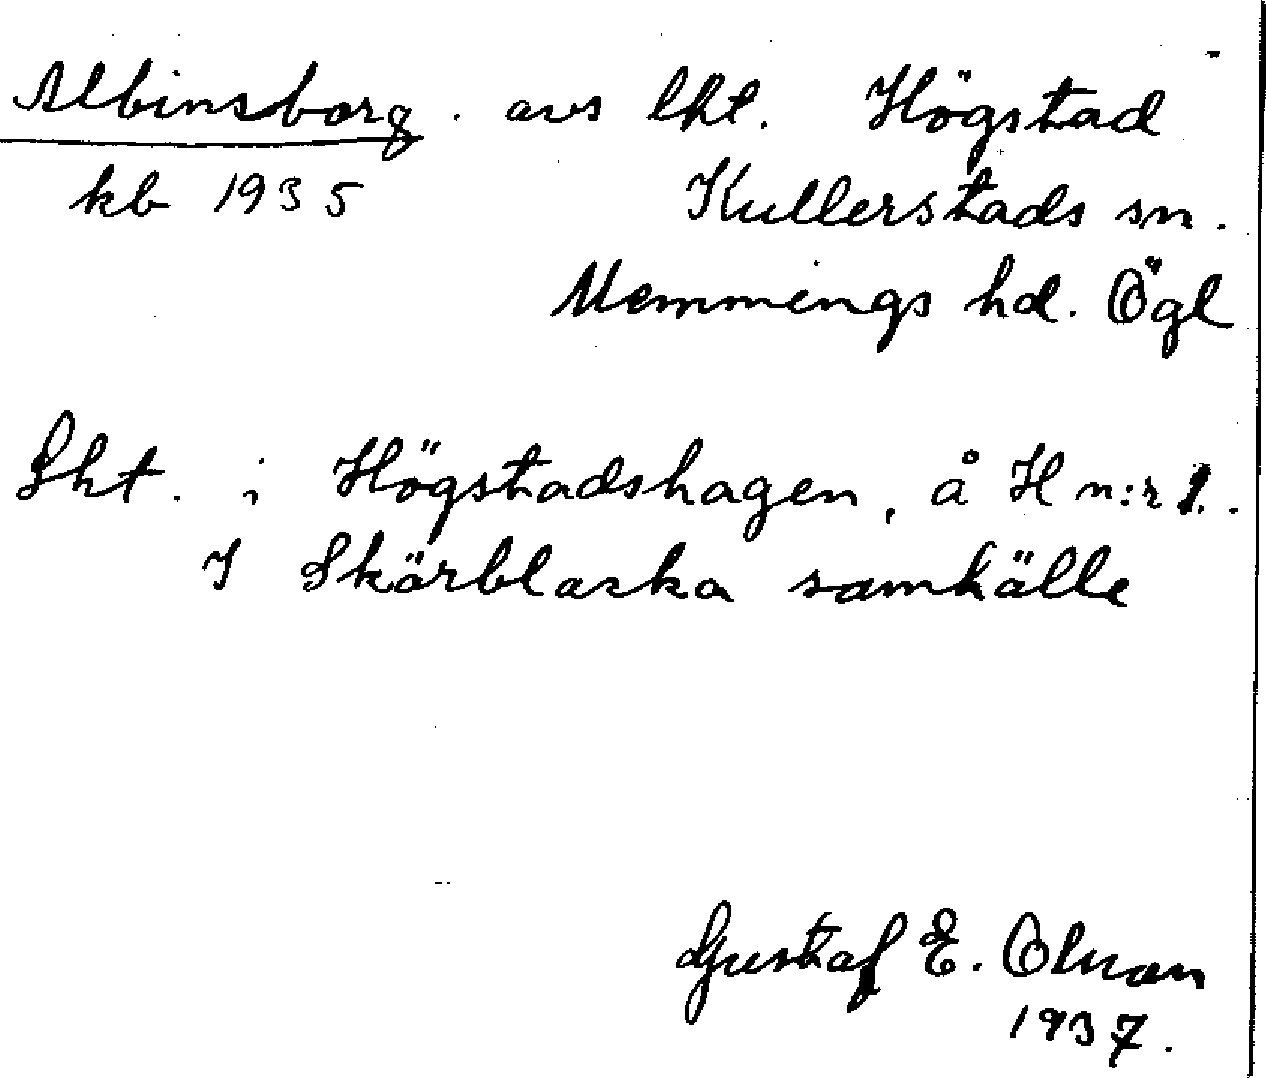 Albinsborg. avs lht. Högstad
kb 1935 Kullerstads sn.
Memmings hd. Ögl
Lht. i Högstadshagen, å H n:r 1.
I Skärblacka samhälle
Gustaf E. Olson
1937.